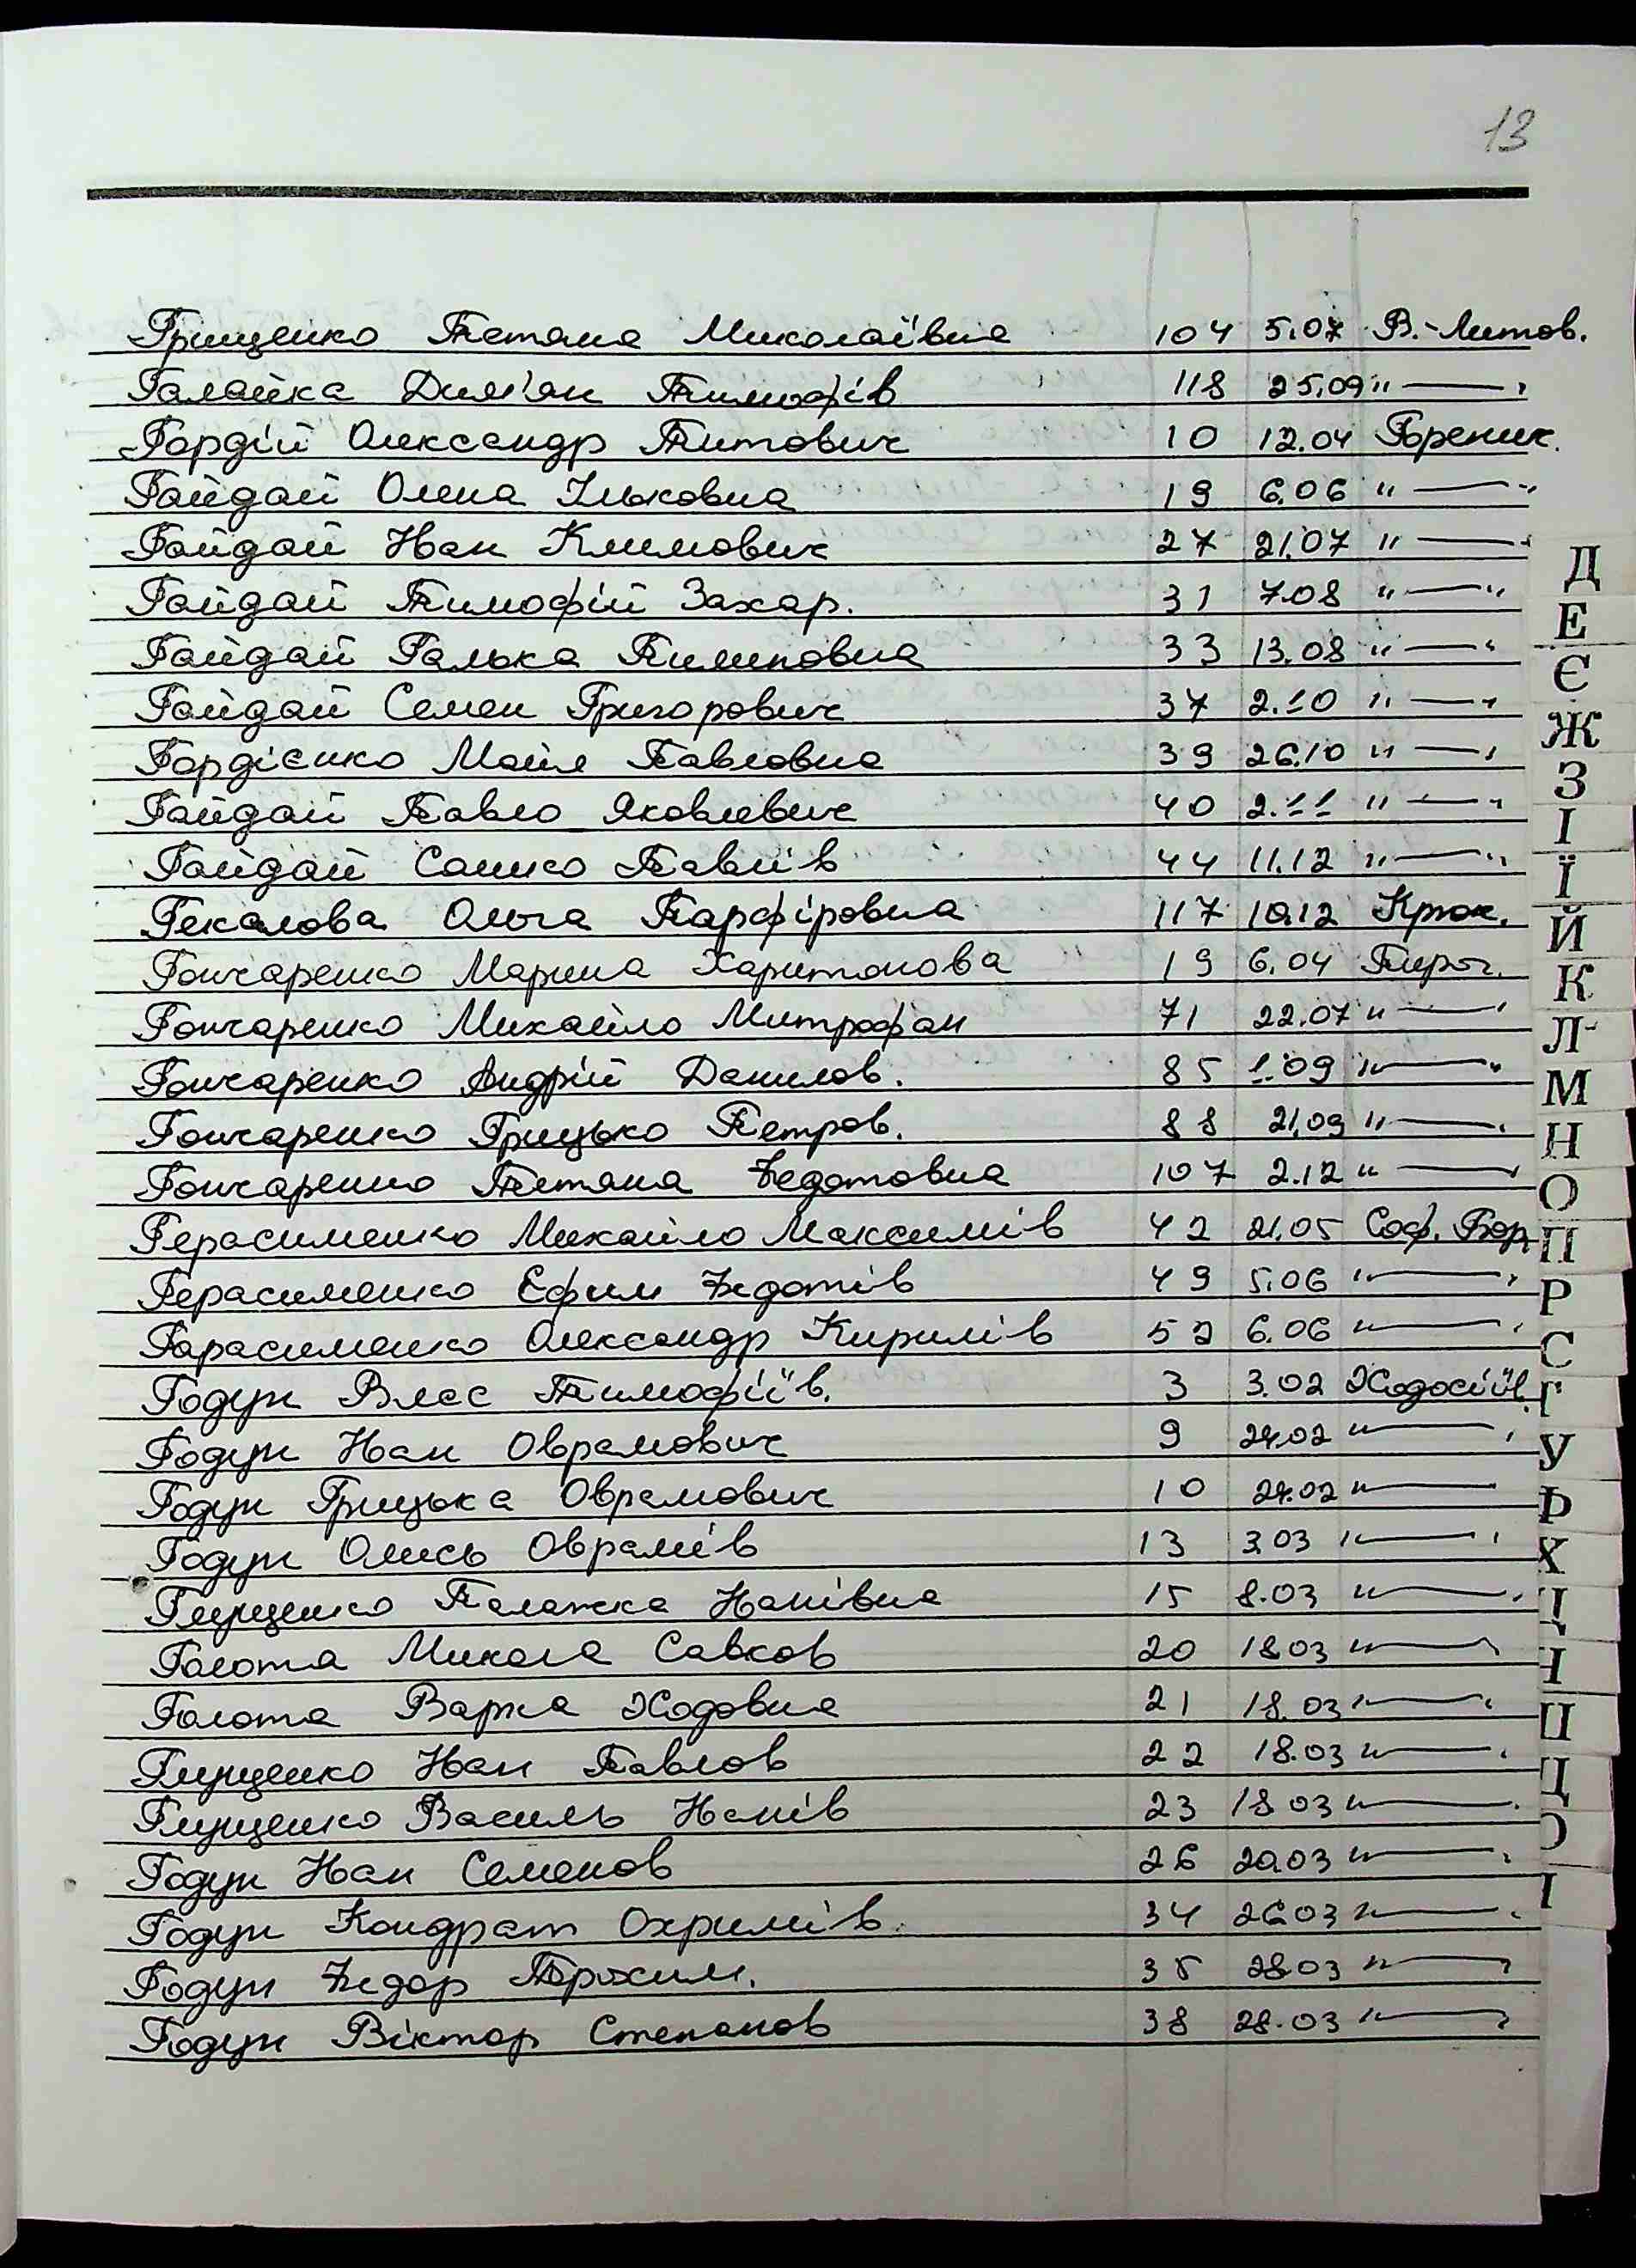 13
Грищенко Тетяна Миколаївна 104 5.07 В.-Литов.
Галайка Дем'ян Тимофів 118 25.09 " — "
Гордій Олександр Титович 10 12.04 Гореник.
Гайдай Олена Ільковна 19 6.06 " — "
Гайдай Іван Климович 27 21.07 " — "
Гайдай Тимофій Захар. 31 7.08 " — "
Гайдай Галька Пилиповна 33 13.08 " — "
Гайдай Семен Григорович 37 2.10 " — "
Гордієнко Майя Павловна 39 26.10 " — "
Гайдай Павло Яковлевич 40 2.11 " — "
Гайдай Сашко Павлів 44 11.12 " — "
Гекалова Ольга Парфіровна 117 10.12 Крюк.
Гончаренко Марина Харитонова 19 6.04 Пирог.
Гончаренко Михайло Митрофан 71 22.07 " — "
Гончаренко Андрій Данилов. 85 1.09 " — "
Гончаренко Грицько Петров. 88 21.09 " — "
Гончаренко Тетяна Федотовна 107 2.12 " — "
Герасименко Михайло Максимів 42 21.05 Соф. Бор
Герасименко Ефим Федотів 49 5.06 " — "
Гарасименко Олександр Кирилів 52 6.06 " — "
Годун Влас Тимофіїв. 3 3.02 Ходосіїв.
Годун Іван Оврамович 9 24.02 " — "
Годун Грицька Оврамович 10 24.02 " —
Годун Олесь Оврамів 13 3.03 " — "
Глущенко Палажка Іванівна 15 8.03 " — "
Голота Микола Савков 20 18.03 " — "
Голота Варка Ходовна 21 18.03 " — "
Глущенко Іван Павлов 22 18.03 " — "
Глущенко Василь Іванів 23 18 03 " — "
Годун Іван Семенов 26 20.03 " — "
Годун Кондрат Охримів. 34 26.03 " — "
Годун Федор Трохим. 35 28.03 " — "
Годун Віктор Степанов 38 28.03 " — "
Д
Е
Є
Ж
З
І
Ї
Й
К
Л
М
Н
О
П
Р
С
Т
У
Ф
Х
Ц